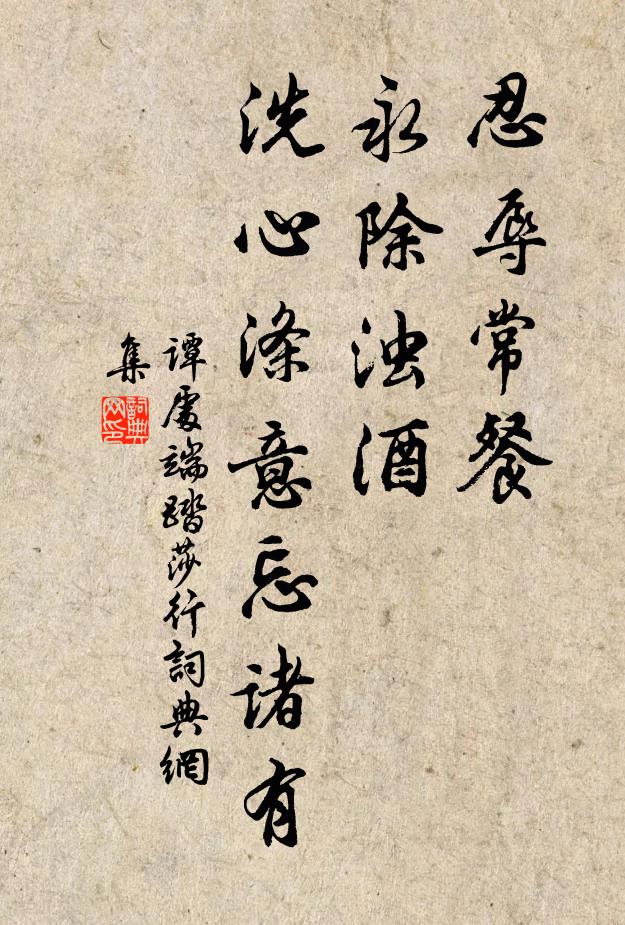 忍辱常餐
永除浊酒
洗心涤意忘诸有
谭处端踏莎行詞典網
集
詞典网印